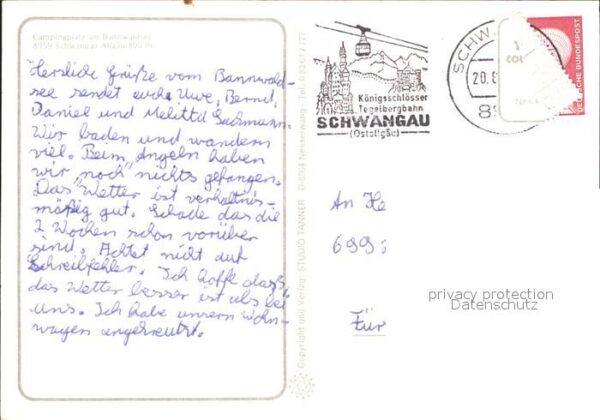 Campingplatz am Bannwaldsee
8959 Schwangau Allgäu 800 m
Herzliche Grüße vom Bannwald-
see sendet euch Uwe, Bernd,
Daniel und Melitta
Wir baden und wandern
viel. Beim Angeln haben
wir "noch" nichts gefangen.
Das Wetter ist verhältnis-
mäßig gut. Schade das die
2 Wochen schon vorüber
sind. Achtet nicht auf
Schreibfehler. Ich hoffe daß
das Wetter besser ist als bei
uns. Ich habe unsern Wohn-
wagen angekreutzt.
Copyright und Verlag: STUDIO TANNER D-8964 Nesselwang Tel.
Königsschlösser
Tegelbergbahn
SCHWANGAU
(Ostallgäu)
SCHW
20.8
89
DEUTSCHE BUNDESPOST
An He
699
Für
privacy protection
Datenschutz